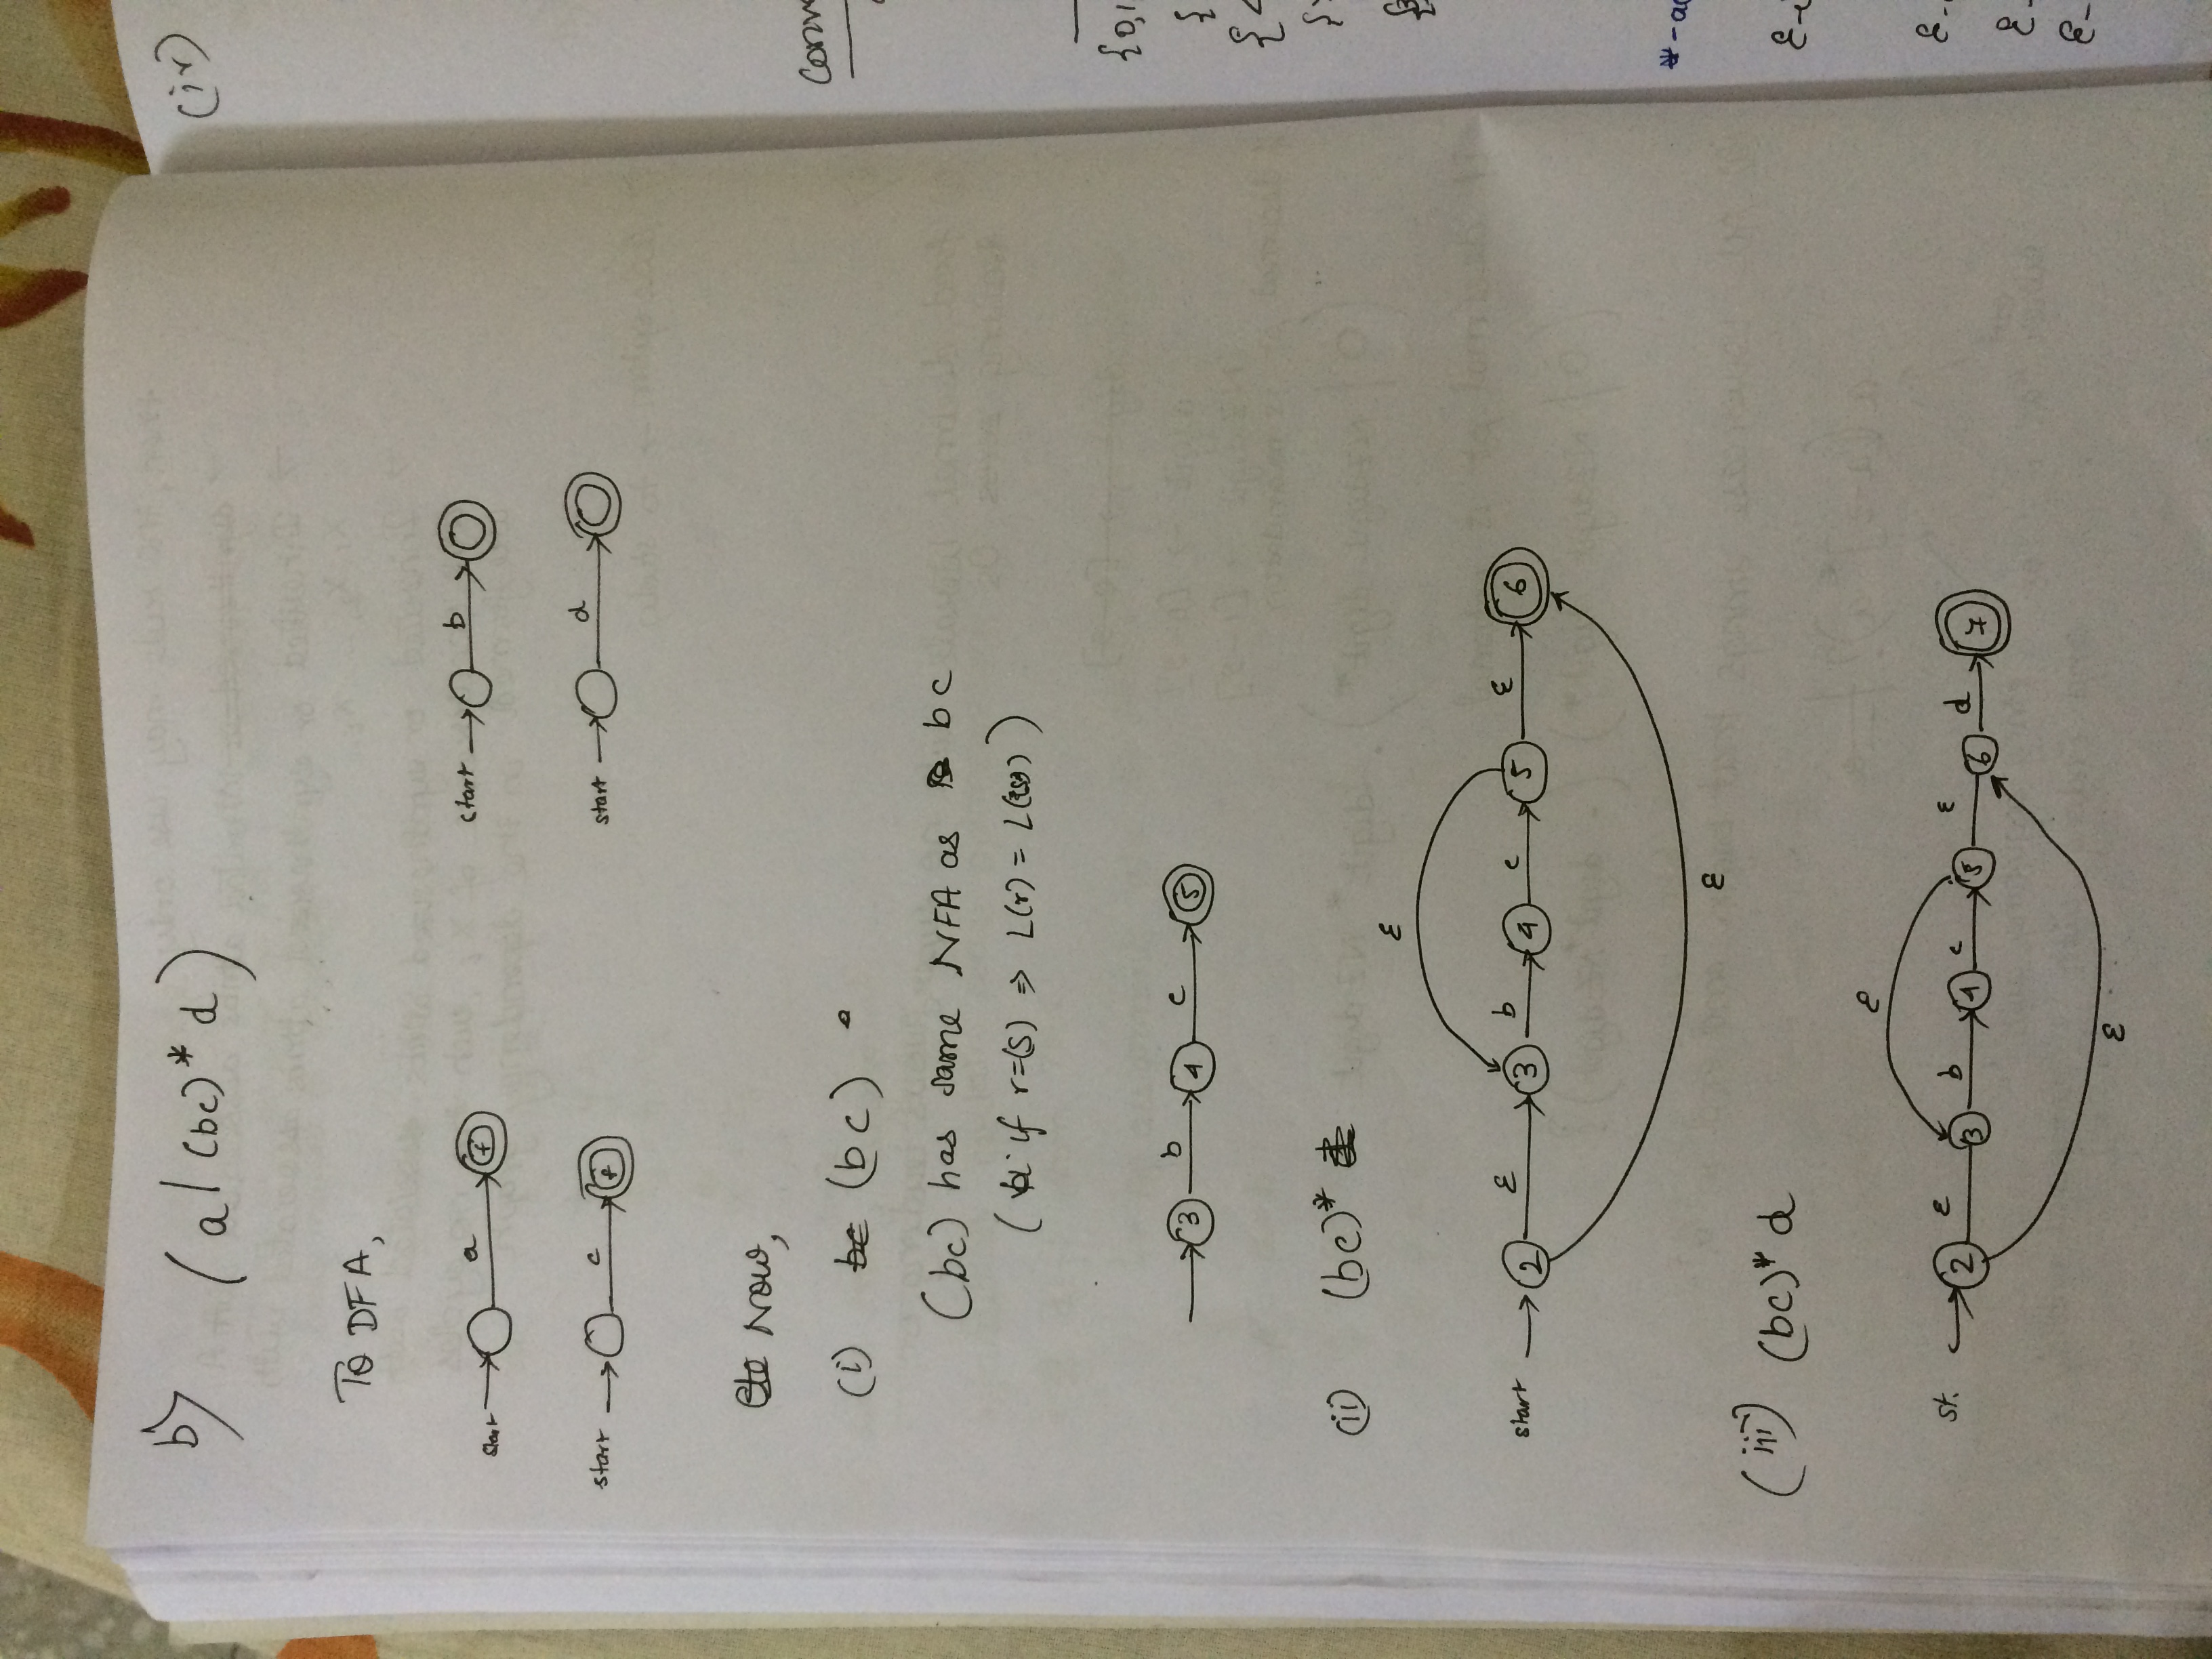 b) (a | (bc)* d)
To DFA,
start a f
start b
start c f
start d
Now,
(i) bc (bc)
(bc) has same NFA as bc
( if r=(s) ⇒ L(r) = L((s)) )
3 b 4 c 5
(ii) (bc)*
ε
start 2 ε 3 b 4 c 5 ε 6
ε
(iii) (bc)* d
ε
st. 2 ε 3 b 4 c 5 ε 6 d 7
ε
(iv)
{0,1,
{
{
{
*-a
ε-
ε-
ε-
ε-